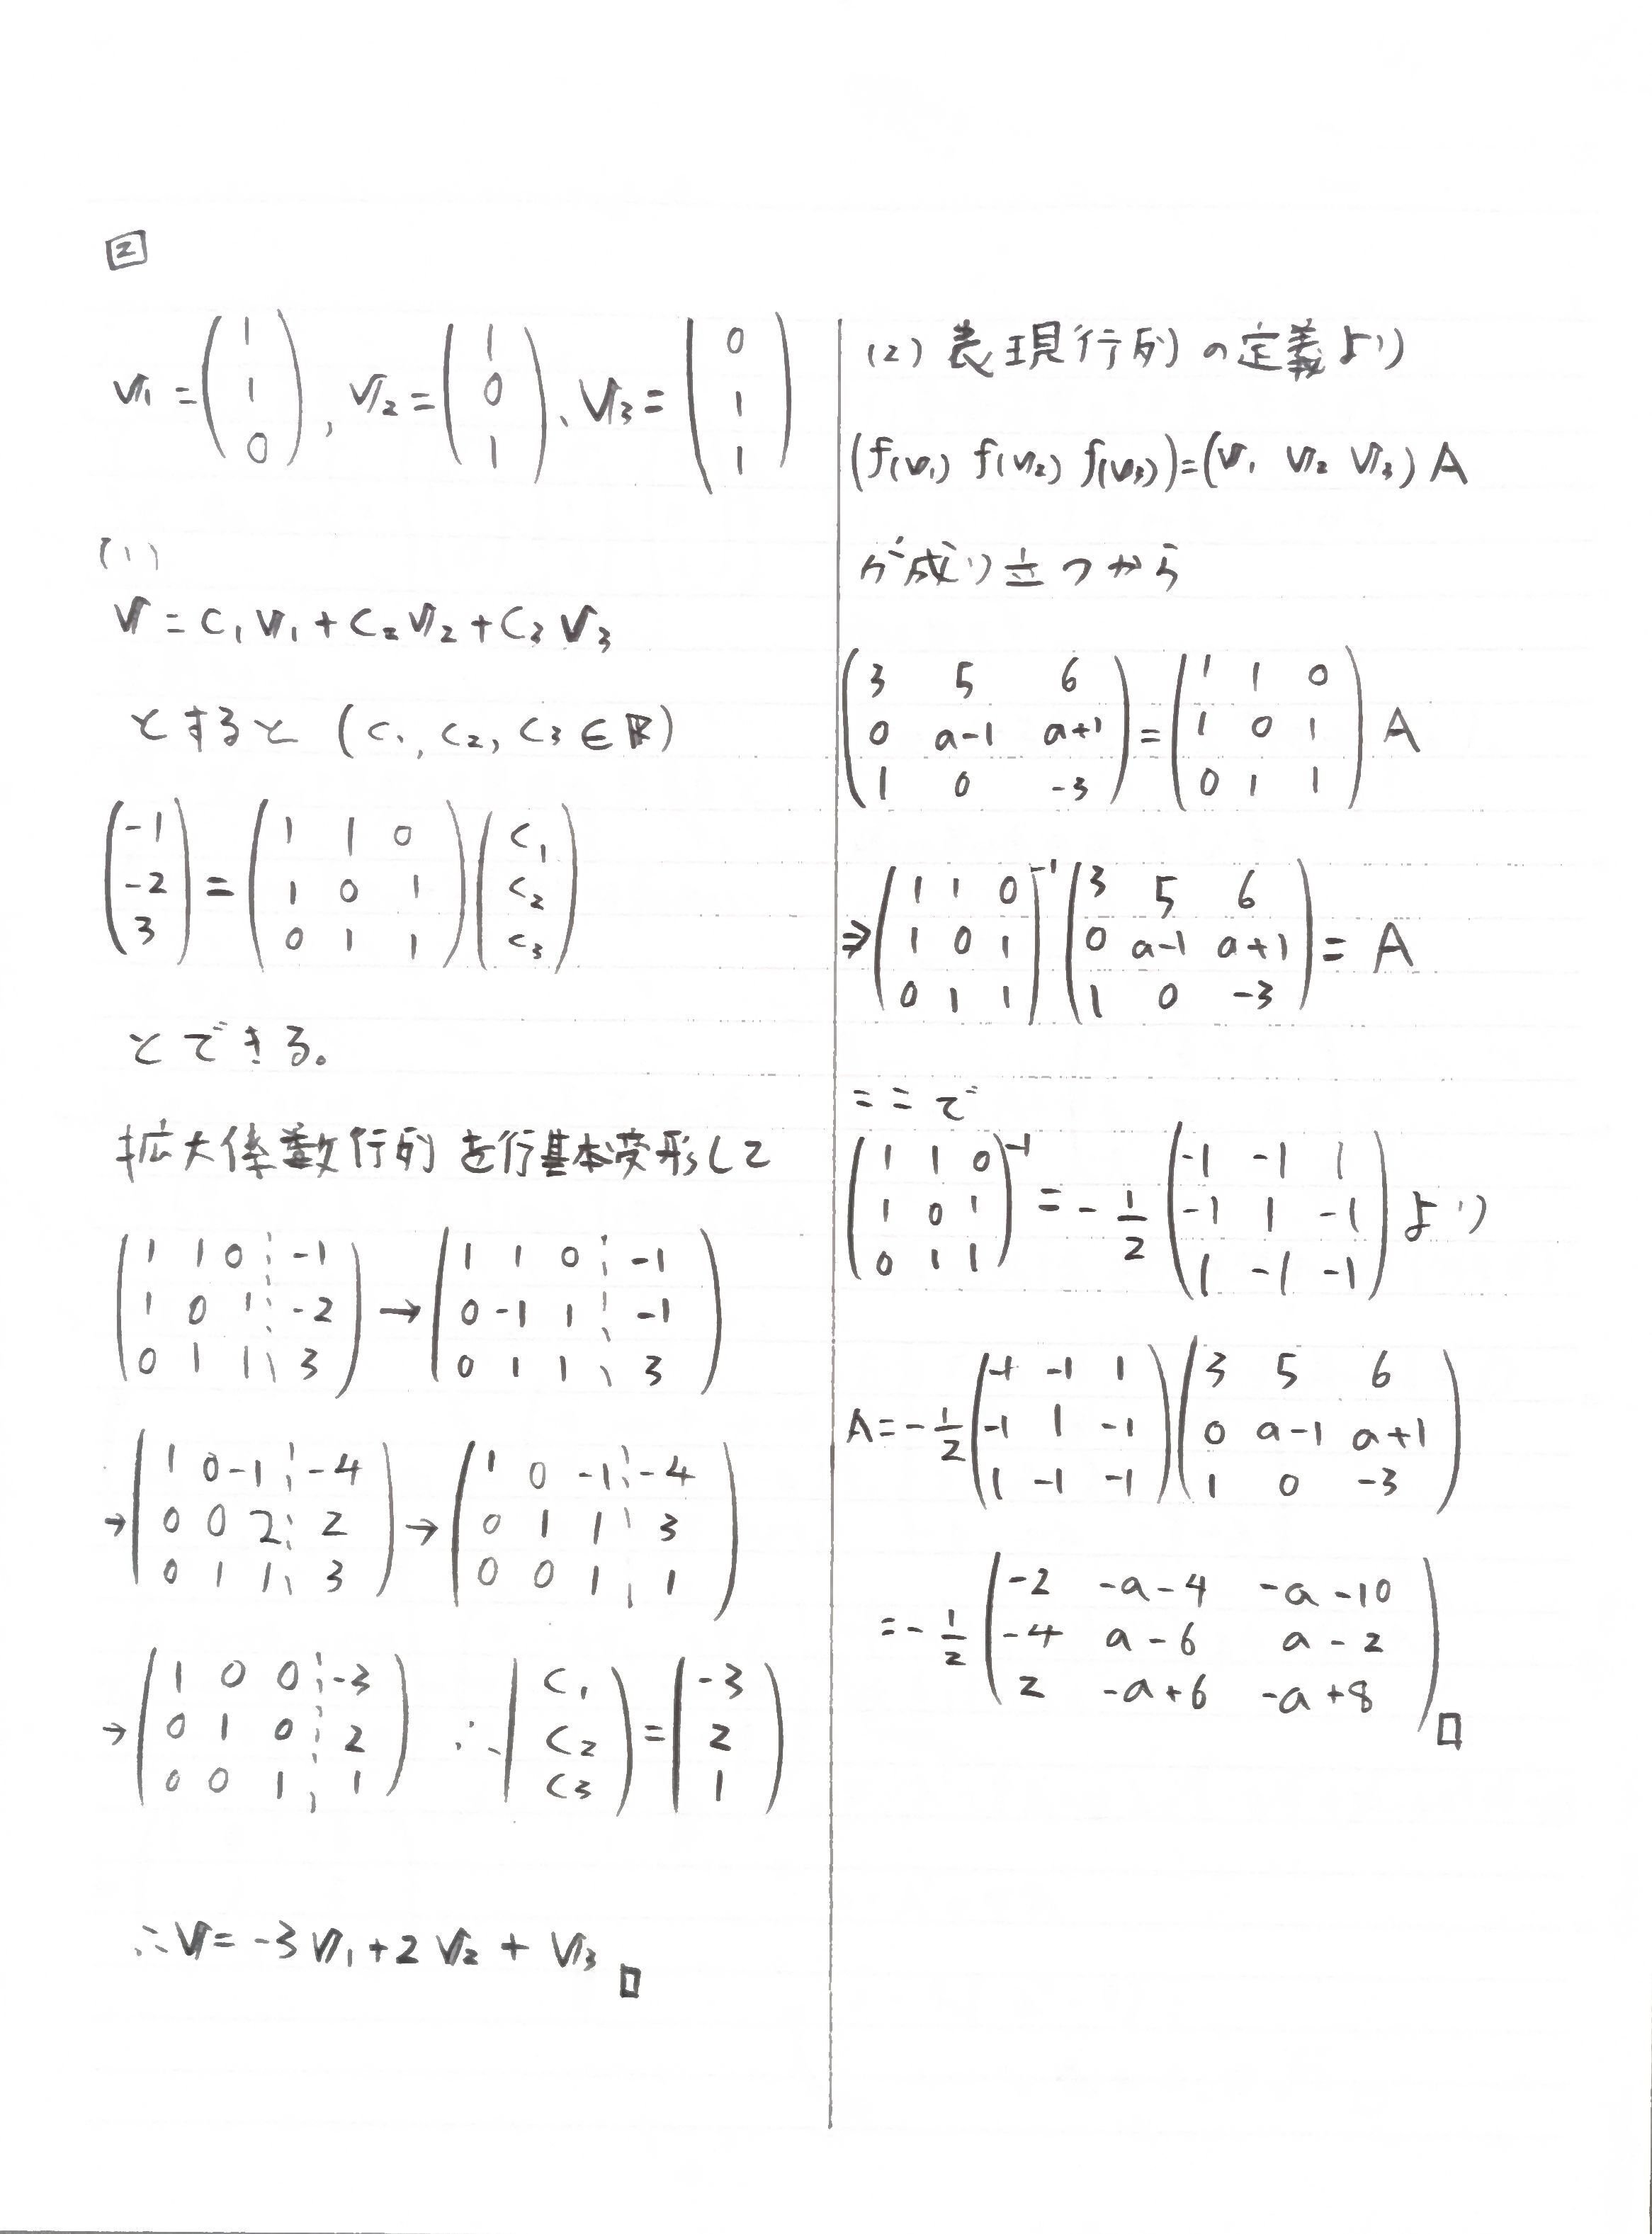 2
v1 = (1 1 0), v2 = (1 0 1), v3 = (0 1 1)
(1)
v = c1 v1 + c2 v2 + c3 v3
とすると (c1, c2, c3 ∈ ℝ)
(-1 -2 3) = (1 1 0
1 0 1
0 1 1) (c1 c2 c3)
とできる。
拡大係数行列を行基本変形して
(1 1 0 ¦ -1
1 0 1 ¦ -2
0 1 1 ¦ 3)
→ (1 1 0 ¦ -1
0 -1 1 ¦ -1
0 1 1 ¦ 3)
→ (1 0 -1 ¦ -4
0 0 2 ¦ 2
0 1 1 ¦ 3)
→ (1 0 -1 ¦ -4
0 1 1 ¦ 3
0 0 1 ¦ 1)
→ (1 0 0 ¦ -3
0 1 0 ¦ 2
0 0 1 ¦ 1)
∴ (c1 c2 c3) = (-3 2 1)
∴ v = -3 v1 + 2 v2 + v3 □
(2) 表現行列の定義より
(f(v1) f(v2) f(v3)) = (v1 v2 v3) A
が成り立つから
(3 5 6
0 a-1 a+1
1 0 -3)
= (1 1 0
1 0 1
0 1 1) A
⇒ (1 1 0
1 0 1
0 1 1)^-1
(3 5 6
0 a-1 a+1
1 0 -3) = A
ここで
(1 1 0
1 0 1
0 1 1)^-1
= - 1/2 (-1 -1 1
-1 1 -1
1 -1 -1) より
A = - 1/2 (-1 -1 1
-1 1 -1
1 -1 -1)
(3 5 6
0 a-1 a+1
1 0 -3)
= - 1/2 (-2 -a-4 -a-10
-4 a-6 a-2
2 -a+6 -a+8) □